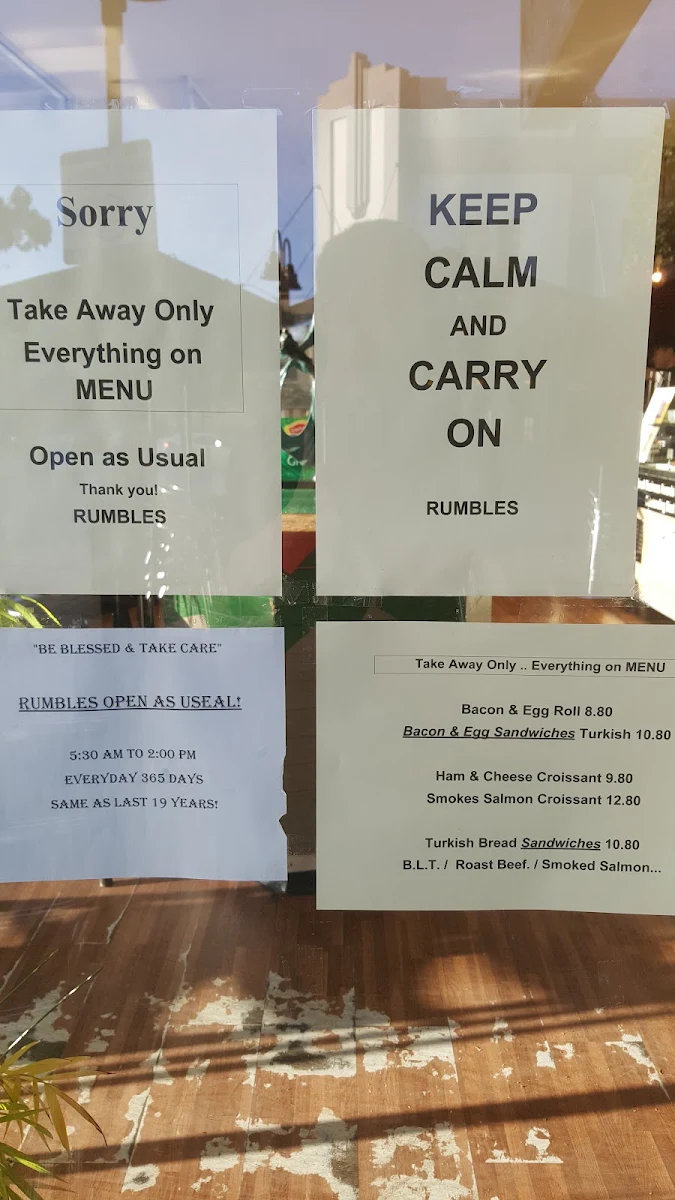 Sorry
Take Away Only
Everything on
MENU
Open as Usual
Thank you!
RUMBLES
KEEP
CALM
AND
CARRY
ON
RUMBLES
"BE BLESSED & TAKE CARE"
RUMBLES OPEN AS USEAL!
5:30 AM TO 2:00 PM
EVERYDAY 365 DAYS
SAME AS LAST 19 YEARS!
Take Away Only .. Everything on MENU
Bacon & Egg Roll 8.80
Bacon & Egg Sandwiches Turkish 10.80
Ham & Cheese Croissant 9.80
Smokes Salmon Croissant 12.80
Turkish Bread Sandwiches 10.80
B.L.T. / Roast Beef. / Smoked Salmon...